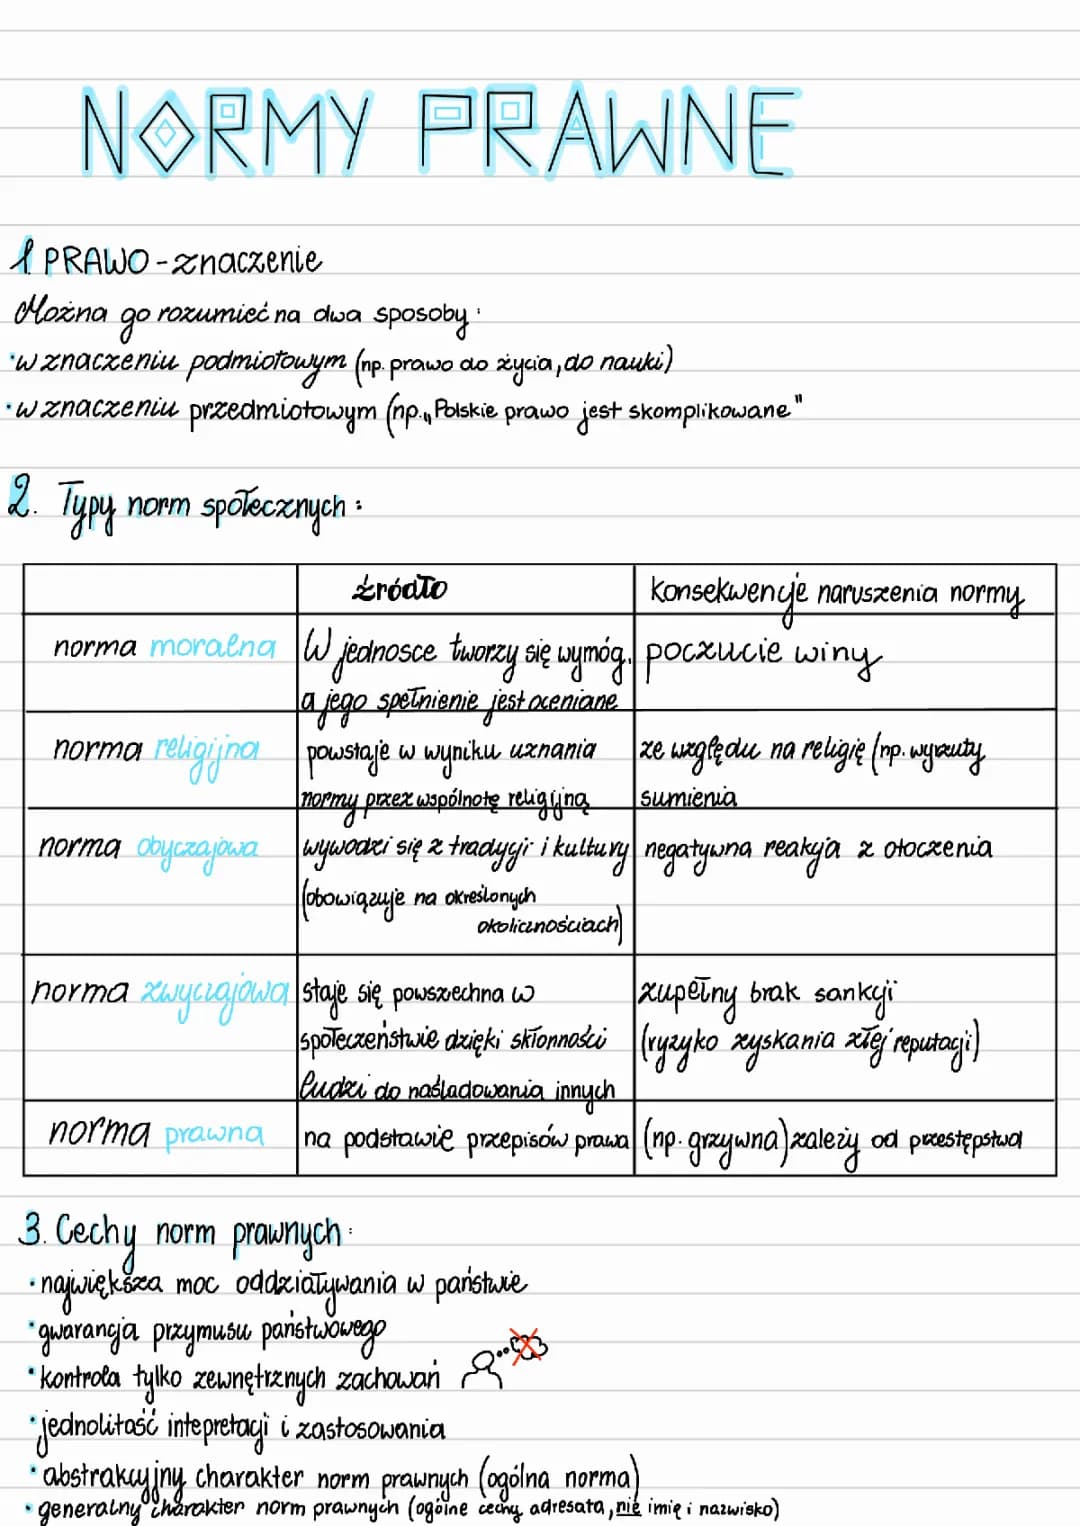 NORMY PRAWNE
1 PRAWO - znaczenie
Można go rozumieć na dwa sposoby:
• w znaczeniu podmiotowym (np. prawo do życia, do nauki)
• w znaczeniu przedmiotowym (np. „Polskie prawo jest skomplikowane"
2. Typy norm społecznych:
źródło
konsekwencje naruszenia normy
norma moralna
W jednosce tworzy się wymóg,
a jego spełnienie jest oceniane
poczucie winy
norma religijna
powstaje w wyniku uznania
normy przez wspólnotę religijną
ze względu na religię (np. wyrzuty
sumienia
norma obyczajowa
wywodzi się z tradycji i kultury
(obowiązuje na określonych
okolicznościach)
negatywna reakcja z otoczenia
norma zwyczajowa
staje się powszechna w
społeczeństwie dzięki skłonności
ludzi do naśladowania innych
zupełny brak sankcji
(ryzyko zyskania złej reputacji)
norma prawna
na podstawie przepisów prawa
(np. grzywna) zależy od przestępstwa
3. Cechy norm prawnych:
• największa moc oddziaływania w państwie
• gwarancja przymusu państwowego
• kontrola tylko zewnętrznych zachowań
• jednolitość intepretacji i zastosowania
• abstrakcyjny charakter norm prawnych (ogólna norma)
• generalny charakter norm prawnych (ogólne cechy adresata, nie imię i nazwisko)